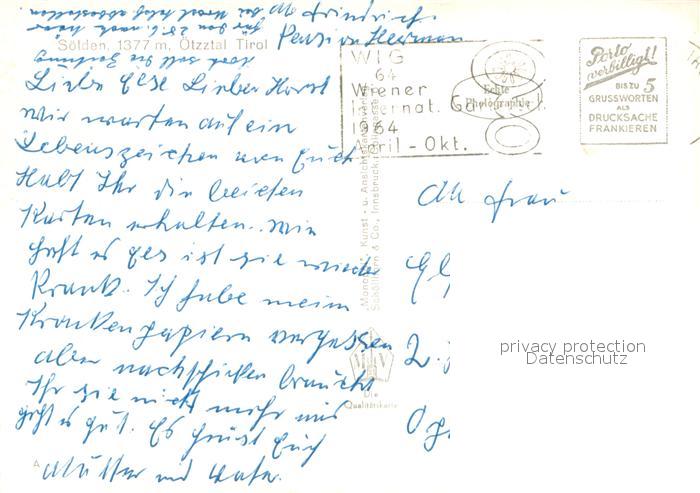 A. Friedrich
Pension Herrman
Sölden, 1377 m, Ötztal Tirol
Liebe Else Lieber Horst
Wir warten auf ein
Lebenszeichen von Euch
Habt Ihr die beiden
Karten erhalten. Wie
geht es Else ist sie wieder
Krank. Ich habe meine
Krankenpapiere vergessen
aber nachschicken braucht
Ihr sie nicht mehr mir
geht es gut. Es grüst Euch
Mutter und Vater.
WIG
64
Wiener
Internat. Ga
1964
April - Okt.
Echte
Photographie
Porto
verbilligt!
BIS ZU 5
GRUSSWORTEN
ALS
DRUCKSACHE
FRANKIEREN
An Frau
privacy protection
Datenschutz
Kunst- u. Ansichtskarten
Stockhammern & Co., Innsbruck
Die
Qualitätskarte
A